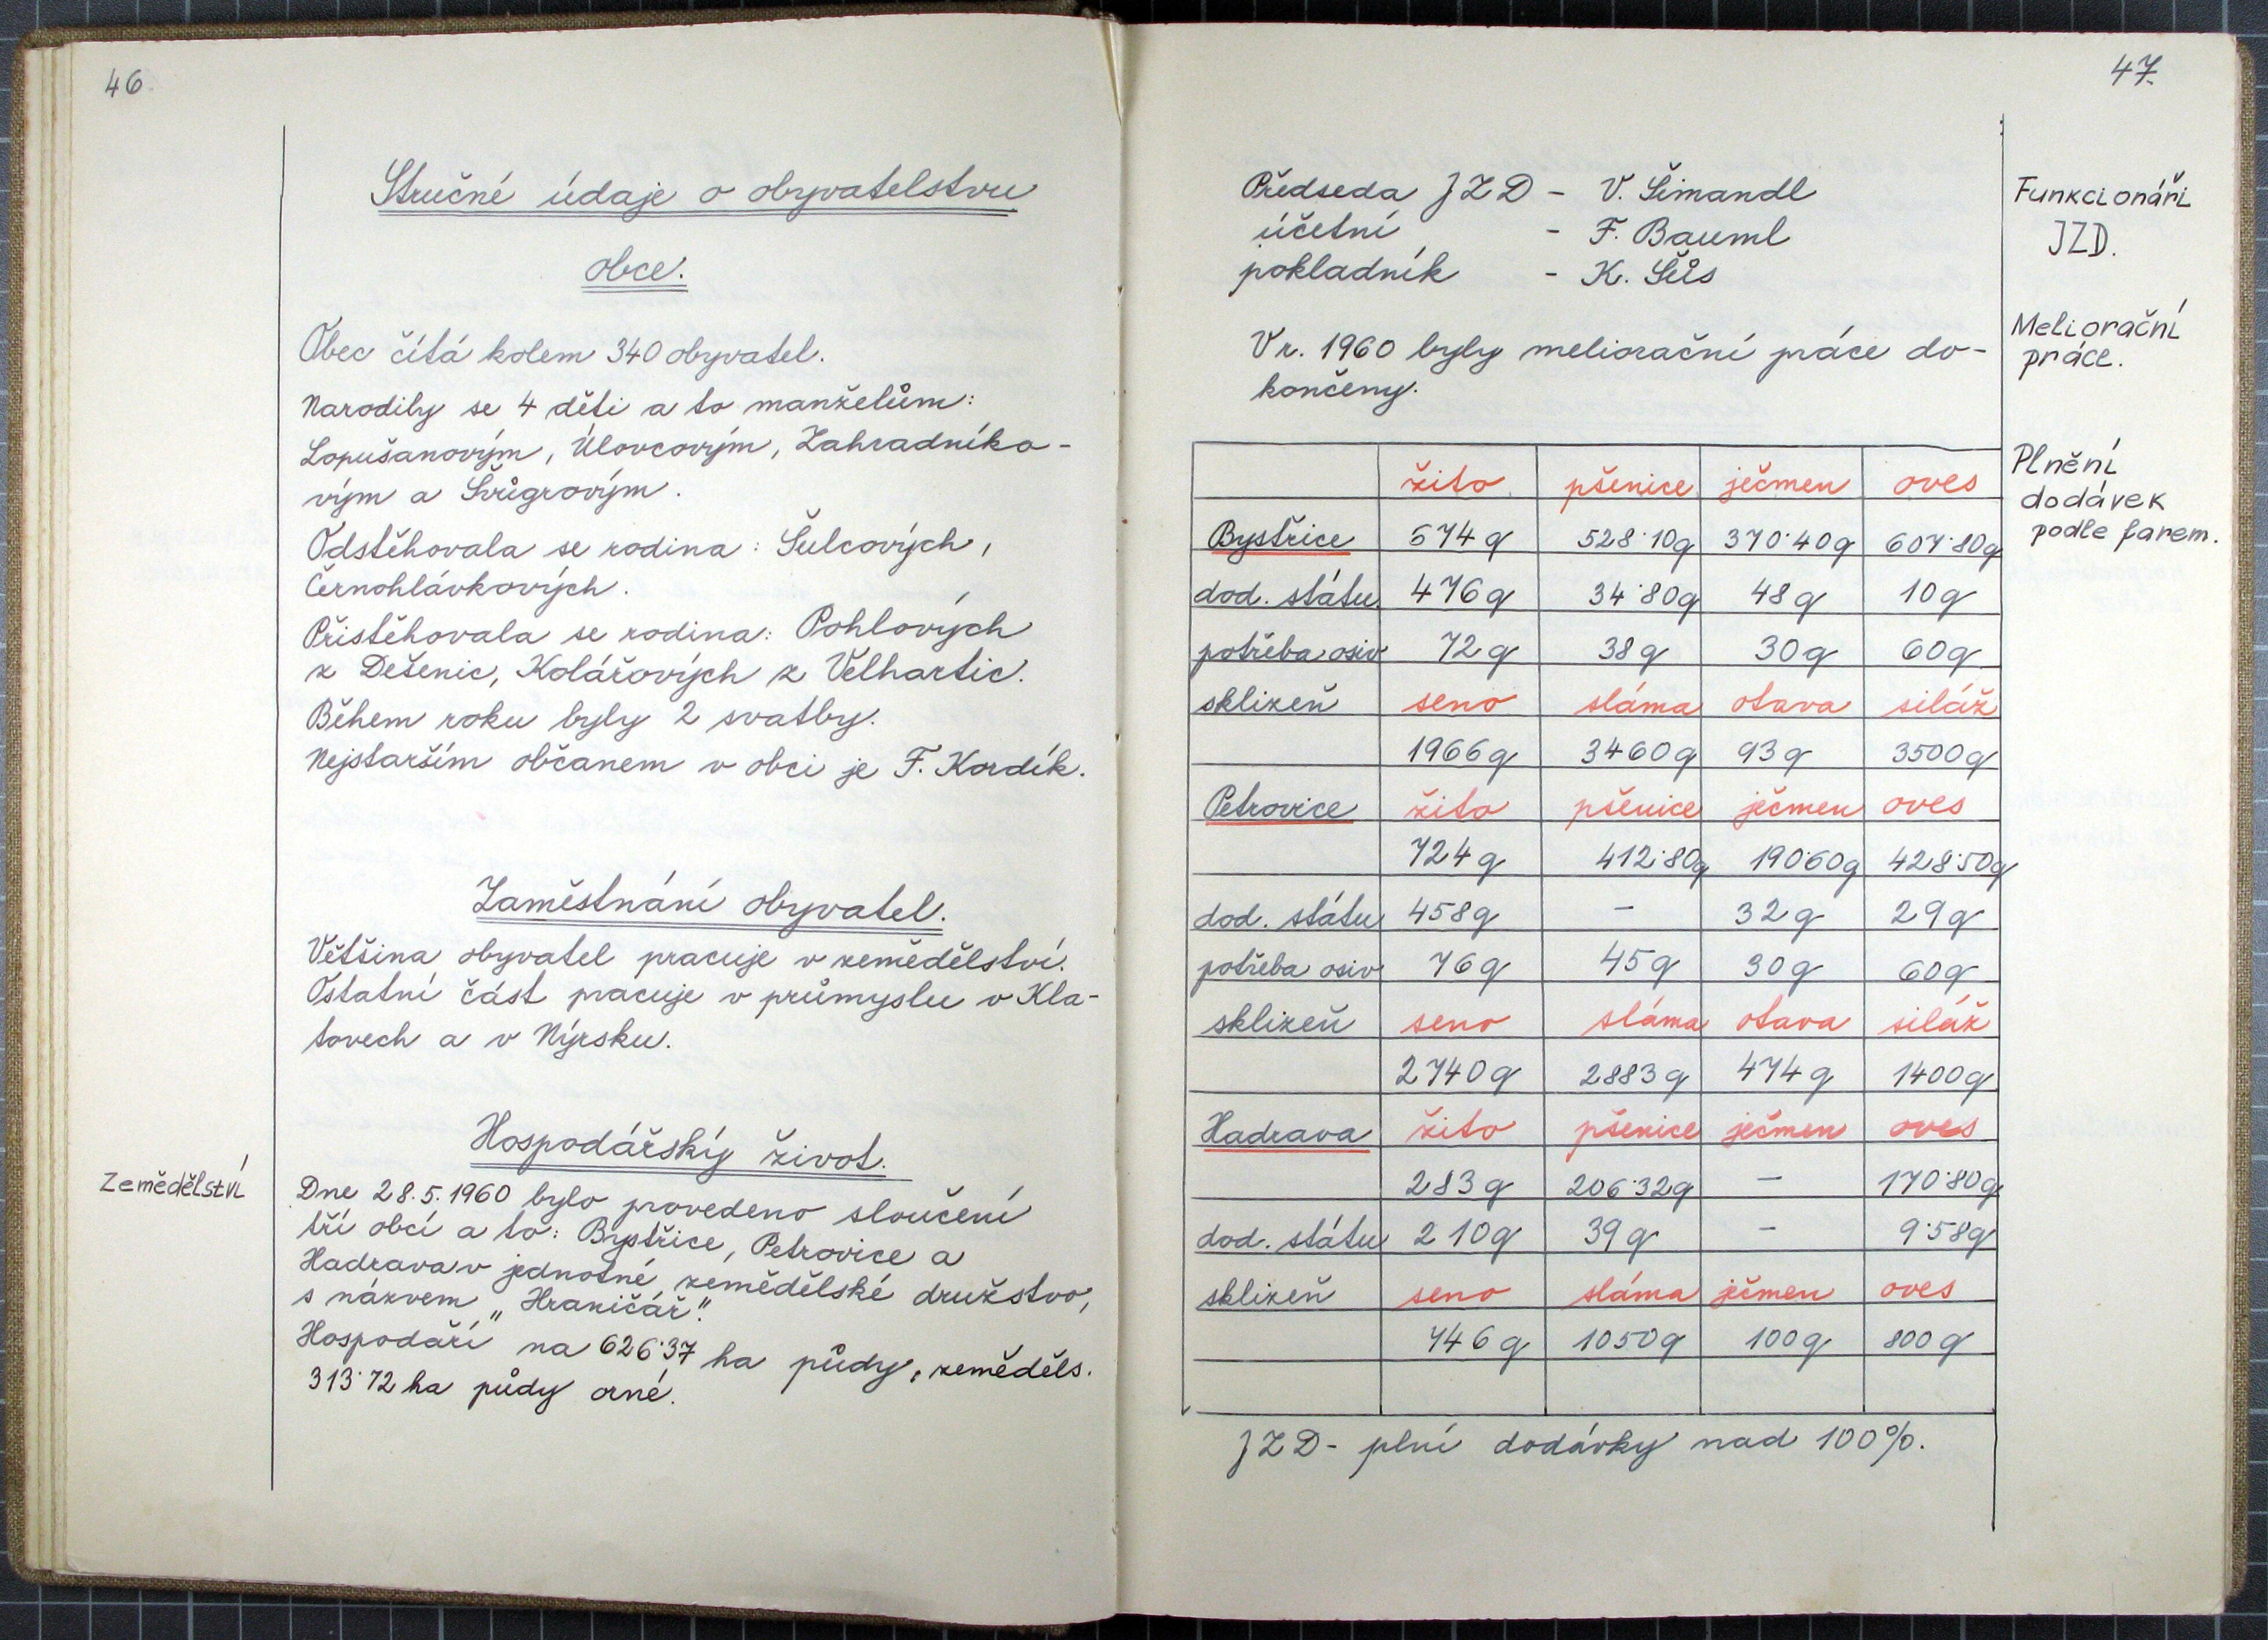 46
Stručné údaje o obyvatelstvu
obce.
Obec čítá kolem 340 obyvatel.
Narodily se 4 děti a to manželům:
Lopušanovým, Úlovcovým, Zahradníko-
vým a Švůgrovým.
Odstěhovala se rodina: Šulcových,
Černohlávkových.
Přistěhovala se rodina: Pohlových
z Dešenic, Kolářových z Velhartic.
Během roku byly 2 svatby.
Nejstarším občanem v obci je F. Kordík.
Zaměstnání obyvatel.
Většina obyvatel pracuje v zemědělství.
Ostatní část pracuje v průmyslu v Kla-
tovech a v Nýrsku.
Hospodářský život.
Zemědělství
Dne 28.5.1960 bylo provedeno sloučení
tří obcí a to: Bystřice, Petrovice a
Hadrava v jednotné zemědělské družstvo,
s názvem „Hraničář".
Hospodaří na 626·37 ha půdy, zeměděls.
313·72 ha půdy orné.
47.
Předseda JZD - V. Šimandl
účetní - F. Bauml
pokladník - K. Šůs
Funkcionáři
JZD.
V r. 1960 byly meliorační práce do-
končeny.
Meliorační
práce.
Plnění
dodávek
podle farem.
žito pšenice ječmen oves
Bystřice 574 q 528·10q 370·40q 607·80q
dod. státu 476 q 34·80q 48 q 10 q
potřeba osiv 72 q 38 q 30 q 60 q
sklizeň seno sláma otava siláž
1966 q 3460 q 93 q 3500 q
Petrovice žito pšenice ječmen oves
724 q 412·80q 190·60q 428·50q
dod. státu 458 q - 32 q 29 q
potřeba osiv 76 q 45 q 30 q 60 q
sklizeň seno sláma otava siláž
2740 q 2883 q 474 q 1400 q
Hadrava žito pšenice ječmen oves
283 q 206·32q - 170·80q
dod. státu 210 q 39 q - 9·58q
sklizeň seno sláma ječmen oves
746 q 1050 q 100 q 800 q
JZD - plní dodávky nad 100%.